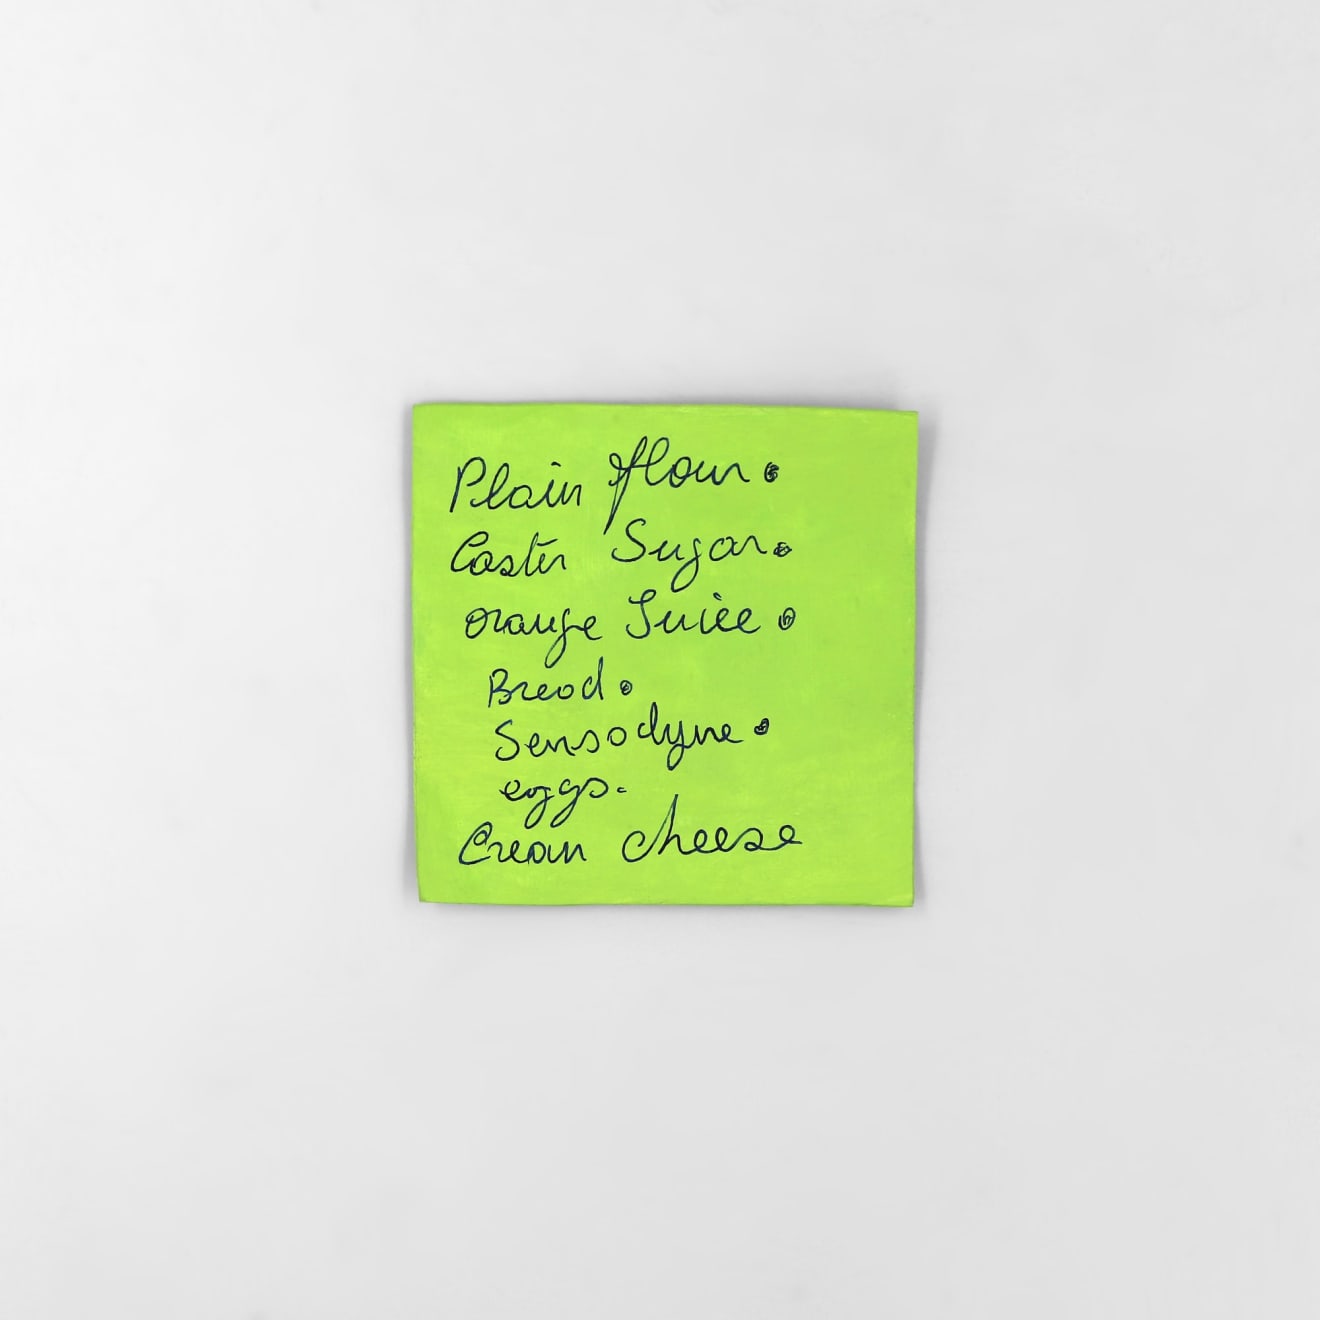 Plain flour.
Caster Sugar.
orange Juice.
Bread.
Sensodyne.
eggs.
Cream cheese